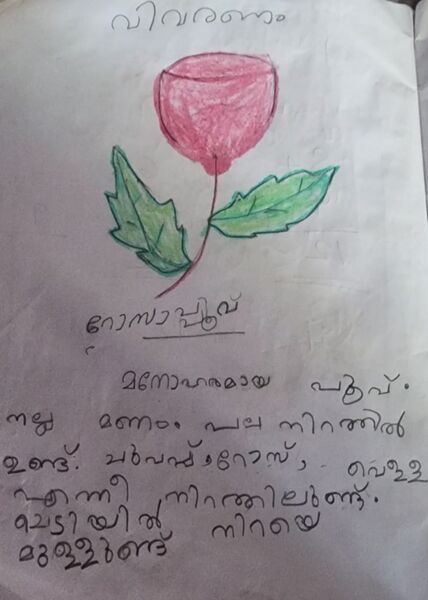 വിവരണം
റോസാപ്പൂവ്
മനോഹരമായ പൂവ്.
നല്ല മണം. പല നിറത്തിൽ
ഉണ്ട്. ചുവപ്പ്, റോസ്, വെള്ള
എന്നീ നിറത്തിലുണ്ട്.
ചെടിയിൽ നിറയെ
മുള്ളുണ്ട്